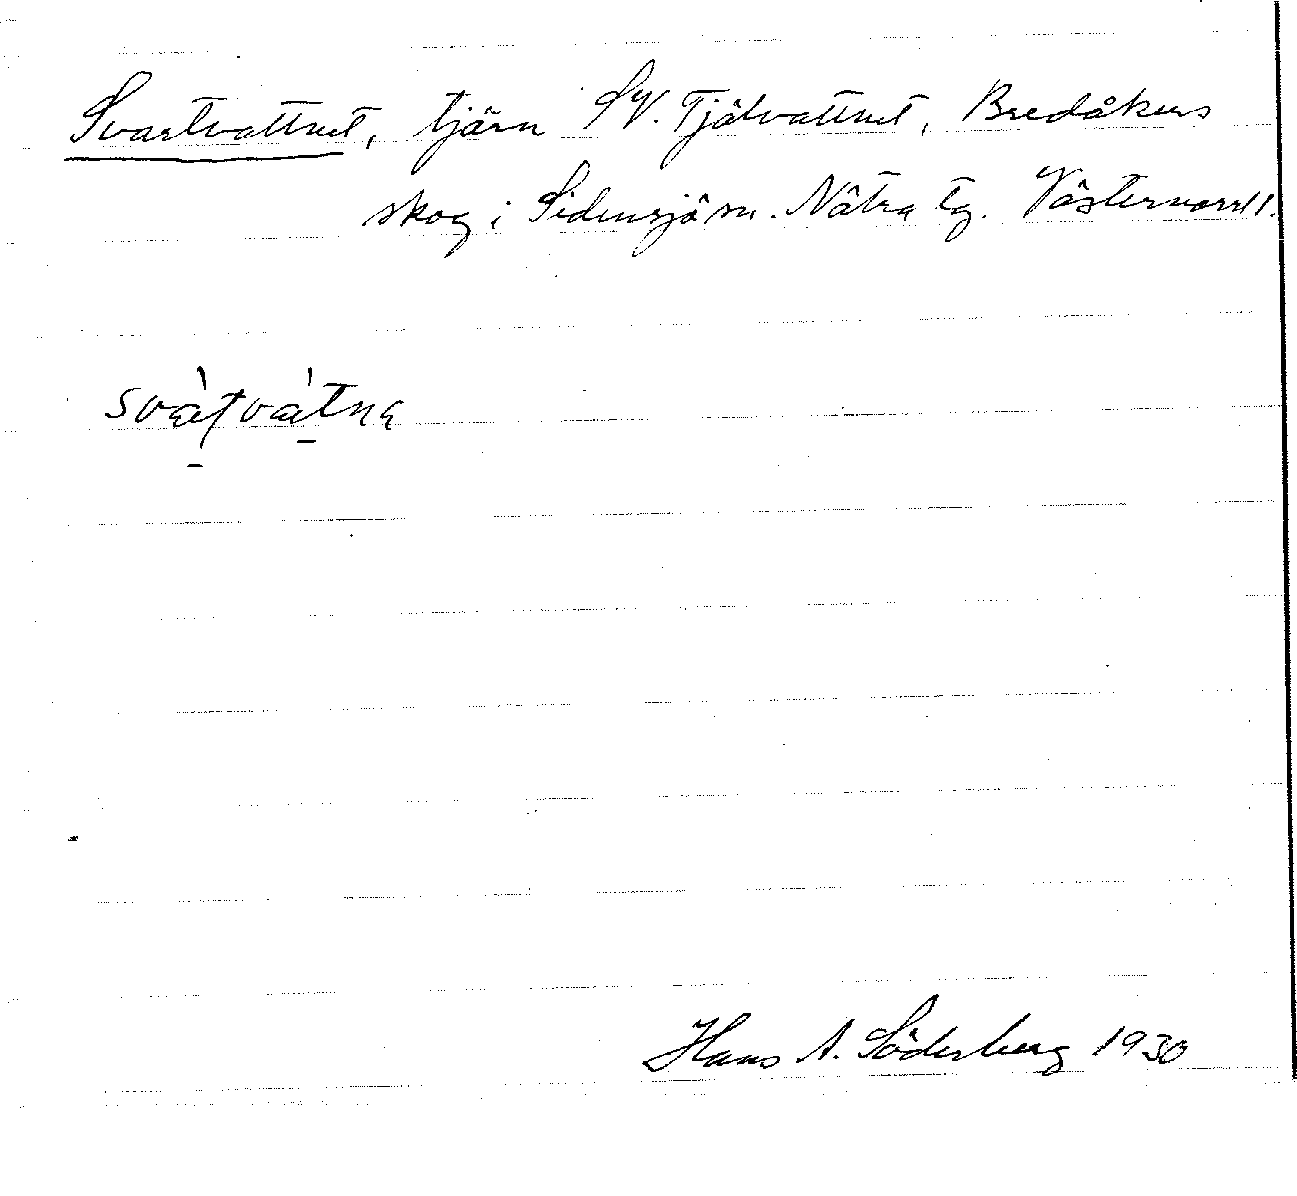 Svartvattnet, tjärn SV. Tjälvattnet, Bredåkers
skog i Sidensjö sn. Nätra tg. Västernorrl l.
svàtvàtna
Hans A. Söderberg 1930